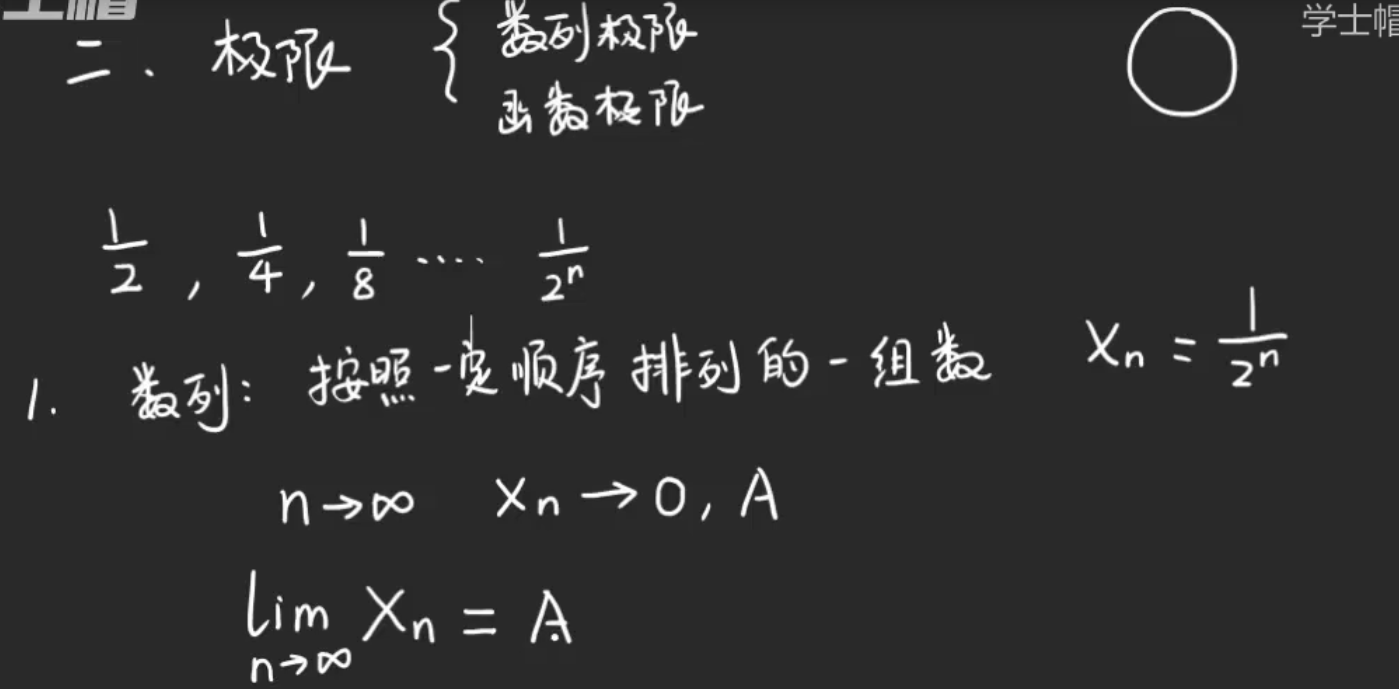 学士帽
二、极限 { 数列极限
函数极限
1/2 , 1/4 , 1/8 ····· 1/2ⁿ
1. 数列: 按照一定顺序排列的一组数 Xn = 1/2ⁿ
n→∞ Xn→0, A
lim Xn = A
n→∞